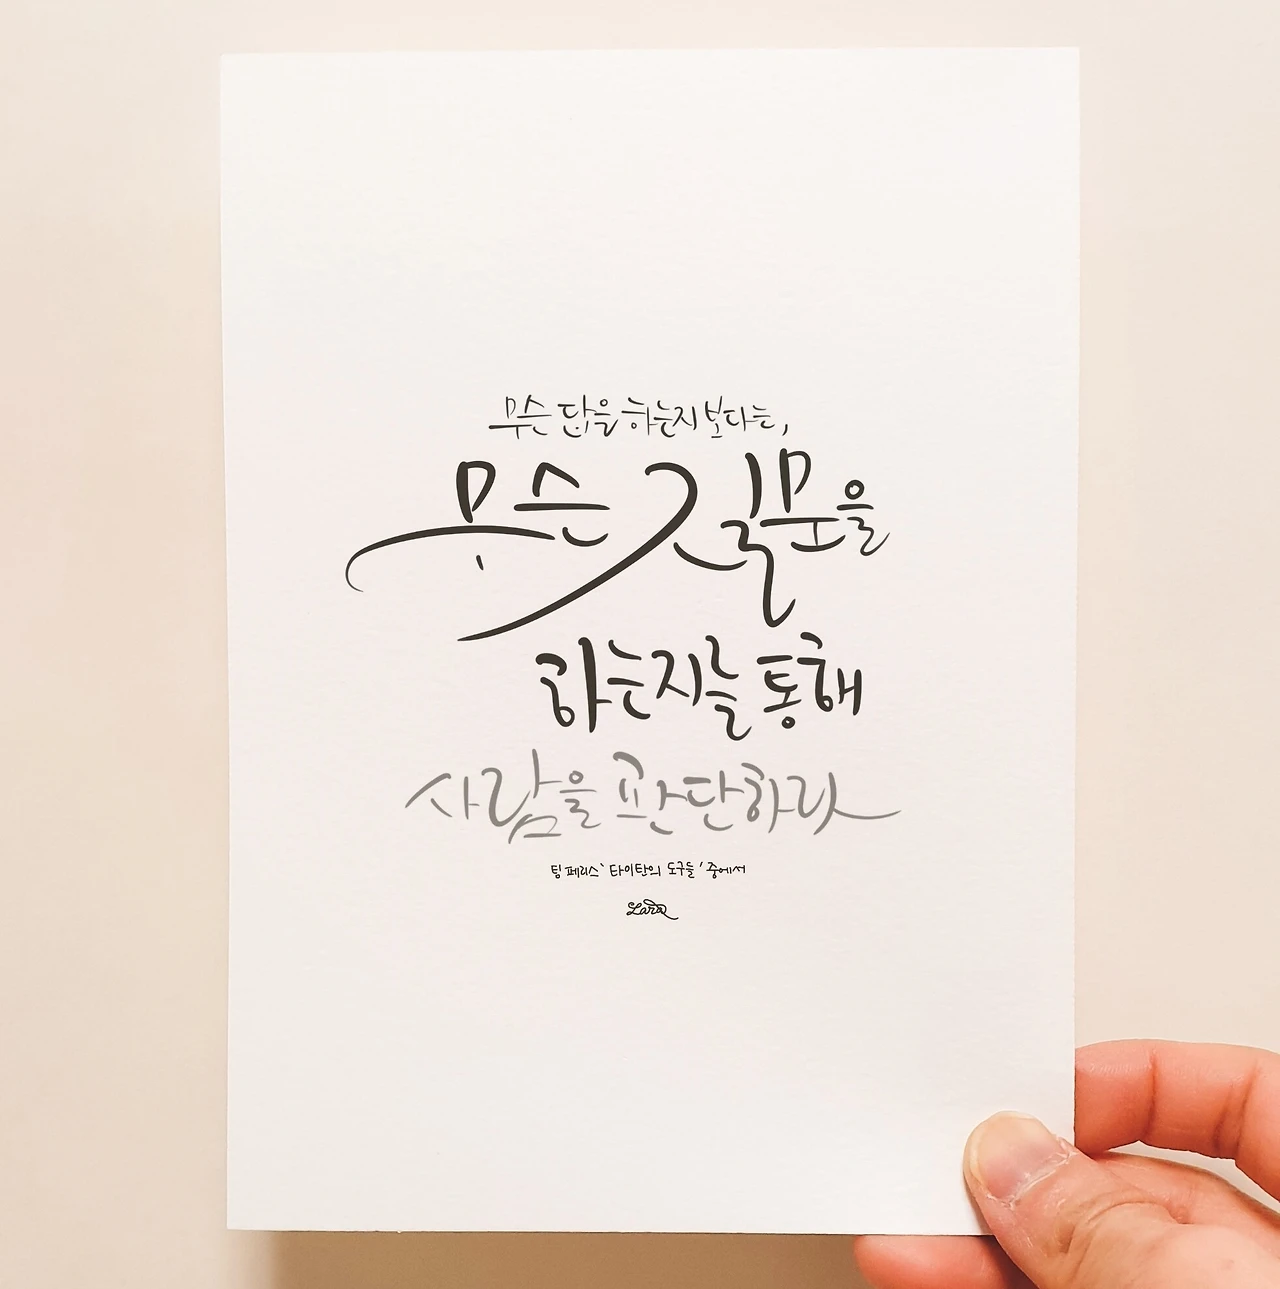 무슨 답을 하는지보다는,
무슨 질문을
하는지를 통해
사람을 판단하라
팀 페리스 '타이탄의 도구들' 중에서
Lara